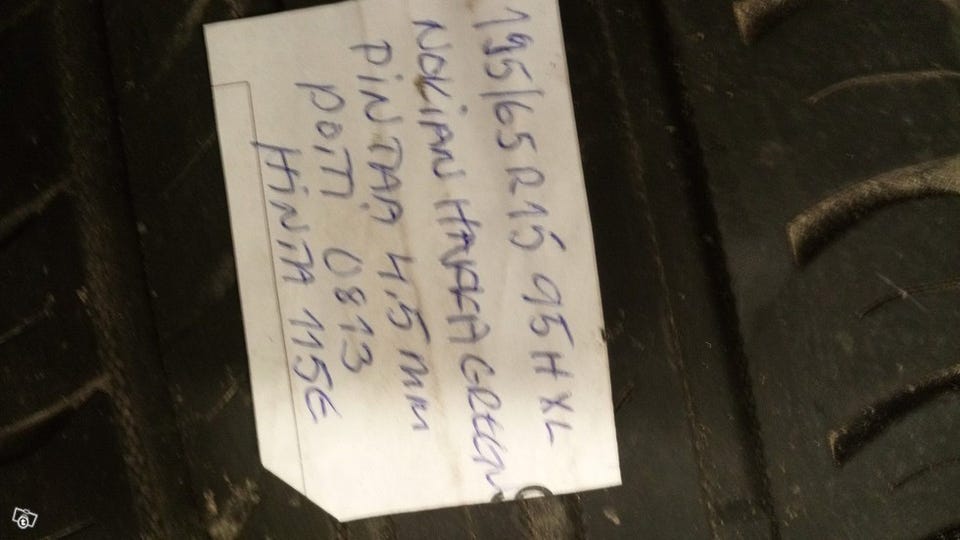 195/65R15 95H XL
NOKIAN HAKKA GREEN
PINTAA 4.5 mm
DOTTI 0813
HINTA 115E